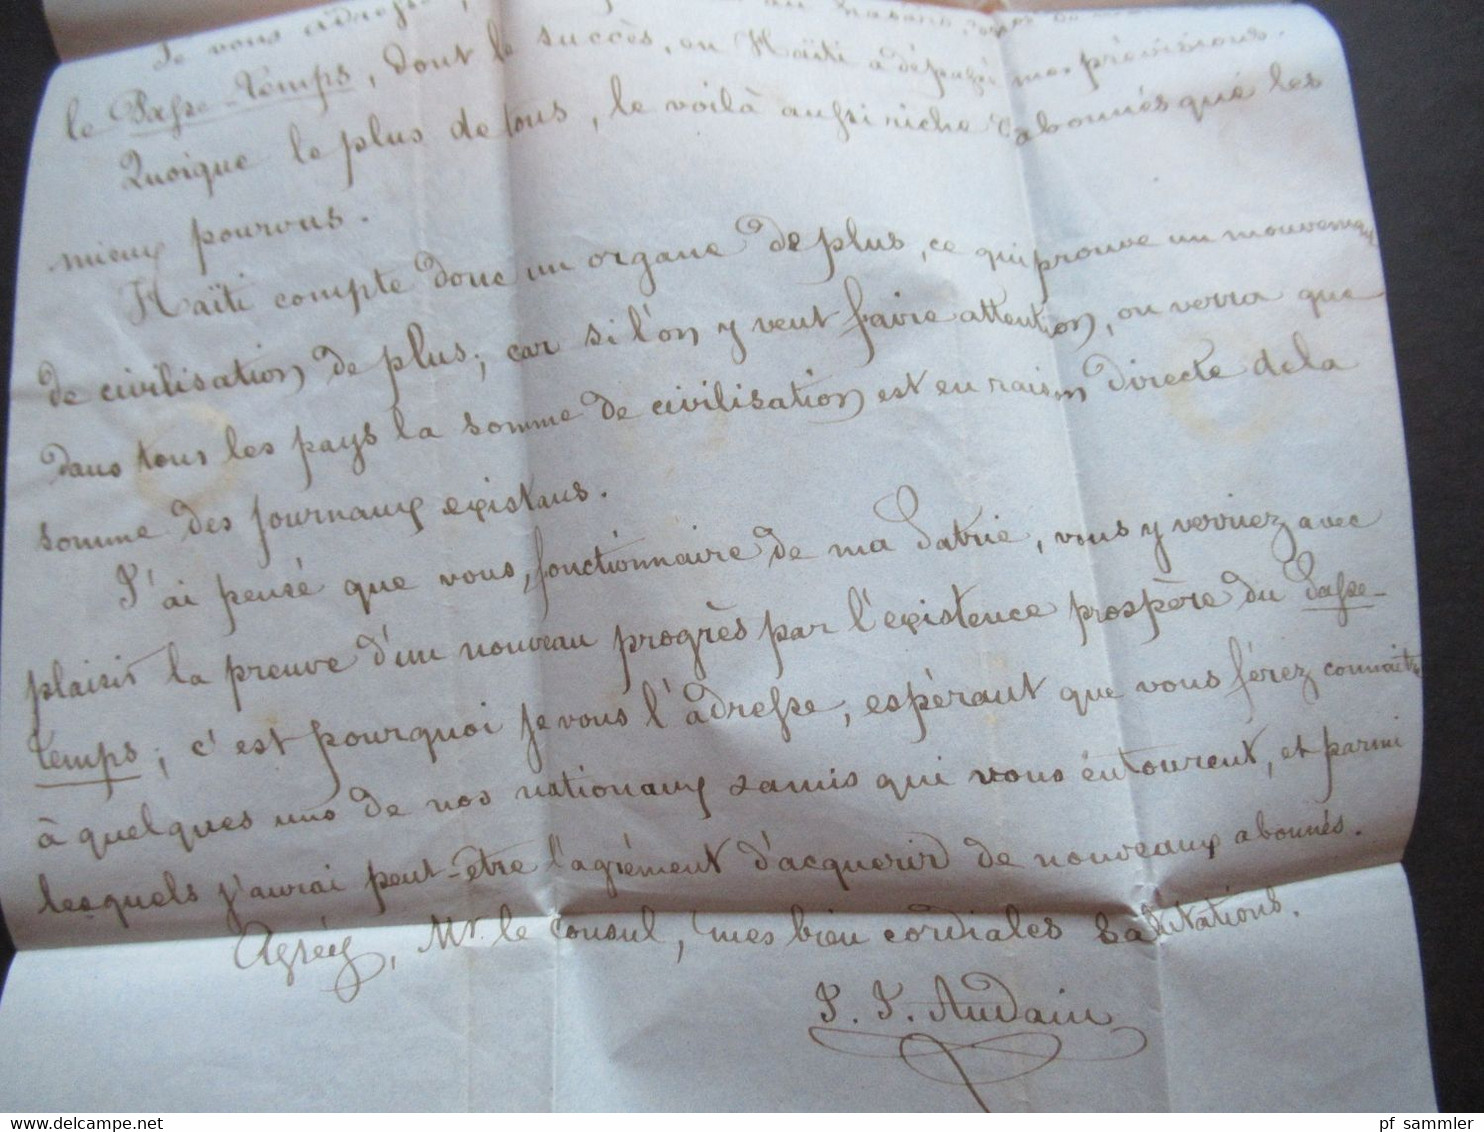 Je vous adresse, au hasard,
le Passe-temps, dont le succès, en Haïti a dépassé mes prévisions.
Quoique le plus de tous, le voilà aussi riche d'abonnés que les
mieux pourvus.
Haïti compte donc un organe de plus, ce qui prouve un mouvement
de civilisation de plus; car si l'on y veut faire attention, on verra que
dans tous les pays la somme de civilisation est en raison directe de la
somme des journaux existans.
J'ai pensé que vous, fonctionnaire de ma Patrie, vous y verriez avec
plaisir la preuve d'un nouveau progrès par l'existence prospère du Passe-
temps; c'est pourquoi je vous l'adresse, espérant que vous ferez connaitre
à quelques uns de nos nationaux & amis qui vous entourent, et parmi
lesquels j'aurai peut-être l'agrément d'acquérir de nouveaux abonnés.
Agréez, Mr. le Consul, mes bien cordiales salutations.
J. J. Audain
pf sammler